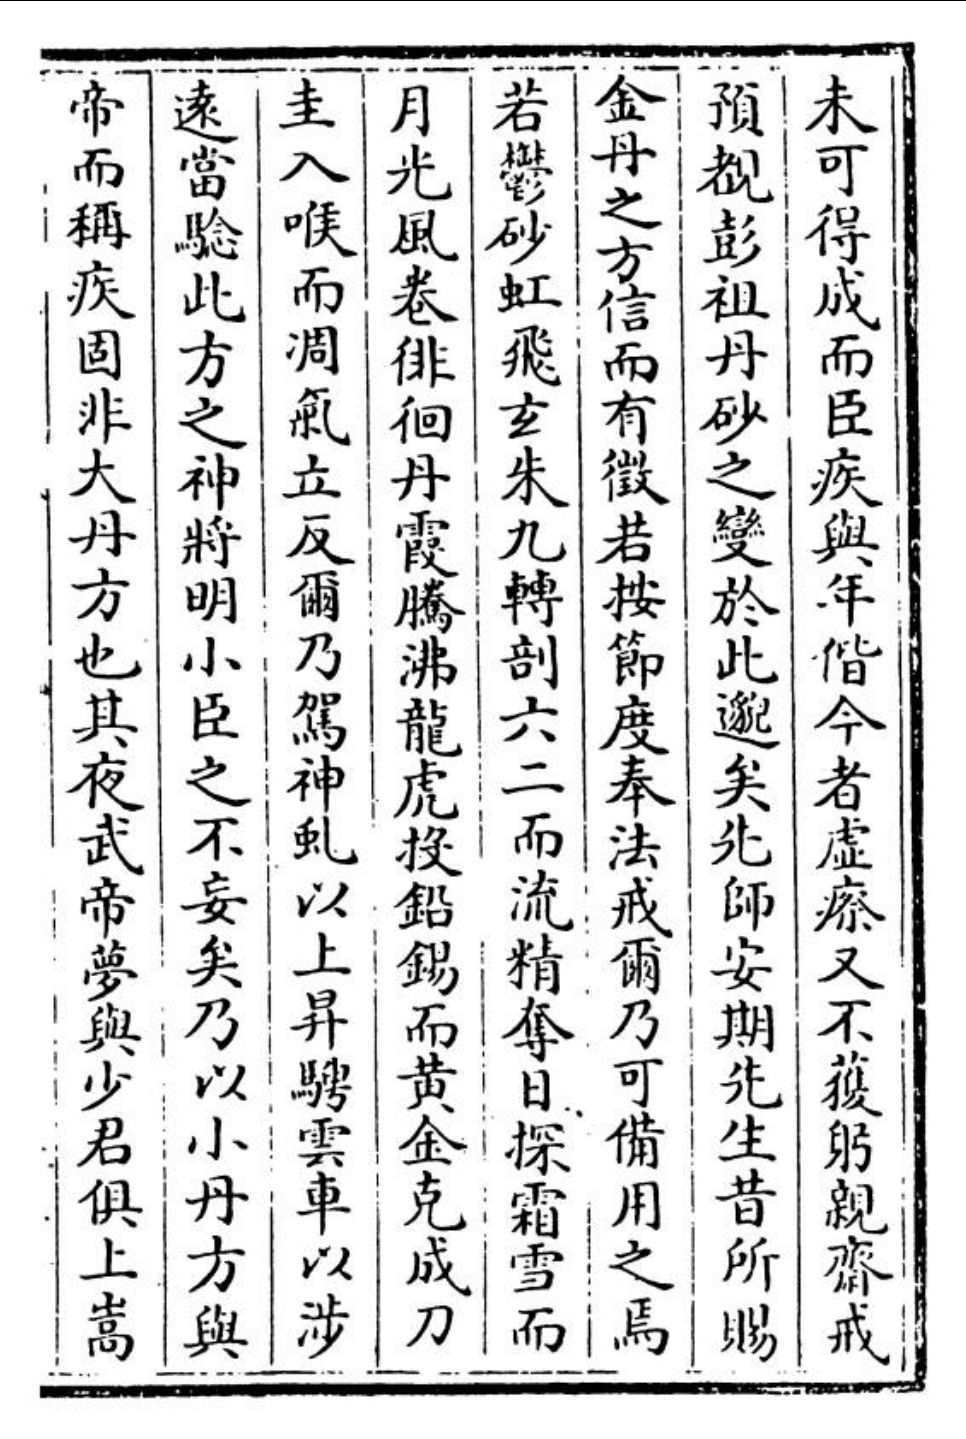 未可得成而臣疾與年偕今者虛瘵又不獲躬親齋戒
預覩彭祖丹砂之變於此邈矣先師安期先生昔所賜
金丹之方信而有徵若按節度奉法戒爾乃可備用之焉
若鬱砂虹飛玄朱九轉剖六二而流精奪日探霜雪而
月光風卷徘徊丹霞騰沸龍虎投鉛錫而黃金克成刀
圭入喉而凋氣立反爾乃駕神虬以上昇騁雲車以涉
遠當驗此方之神將明小臣之不妄矣乃以小丹方與
帝而稱疾固非大丹方也其夜武帝夢與少君俱上嵩